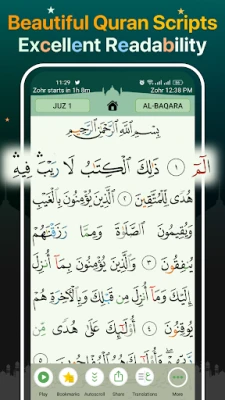 Beautiful Quran Scripts
Excellent Readability
11:29
Zohr starts in 1h 8m
Zohr 12:38 PM
JUZ 1
AL-BAQARA
بِسْمِ اللَّهِ الرَّحْمَٰنِ الرَّحِيمِ
الٓمٓ ۝١ ذَٰلِكَ الْكِتَٰبُ لَا رَيْبَ ۛ فِيهِ ۛ
هُدًى لِّلْمُتَّقِينَ ۝٢ الَّذِينَ يُؤْمِنُونَ بِالْغَيْبِ
وَيُقِيمُونَ الصَّلَوٰةَ وَمِمَّا رَزَقْنَٰهُمْ
يُنفِقُونَ ۝٣ وَالَّذِينَ يُؤْمِنُونَ بِمَآ أُنزِلَ
إِلَيْكَ وَمَآ أُنزِلَ مِن قَبْلِكَ وَبِالْءَاخِرَةِ هُمْ
يُوقِنُونَ ۝٤ أُو۟لَٰٓئِكَ عَلَىٰ هُدًى مِّن
Play
Bookmarks
Autoscroll
Share
Translations
More